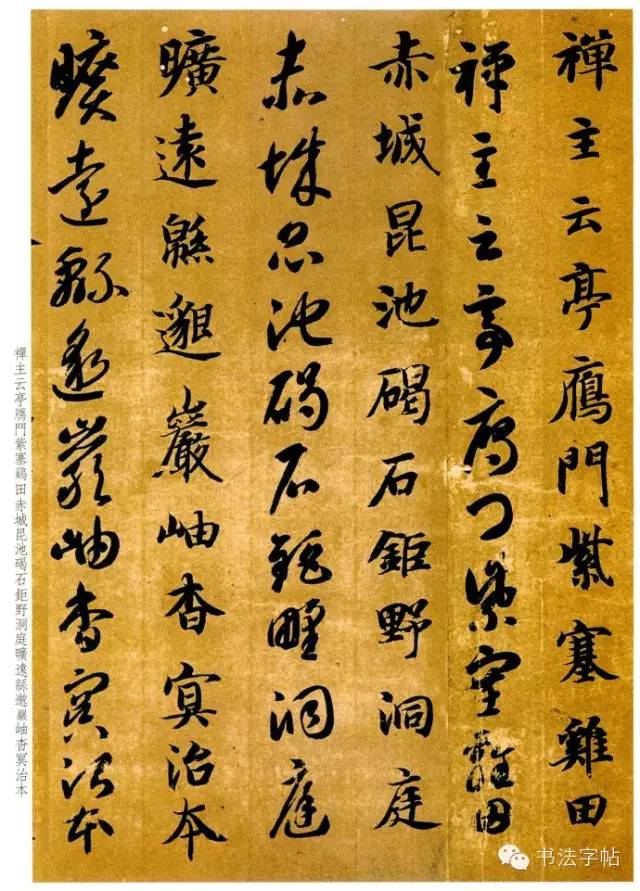 禪主云亭鴈門紫塞雞田
禪主云亭鴈門紫塞雞田
赤城昆池碣石鉅野洞庭
赤城昆池碣石鉅野洞庭
曠遠緜邈巖岫杳冥治本
曠遠緜邈巖岫杳冥治本
禪主云亭鴈門紫塞鷄田赤城昆池碣石鉅野洞庭曠遠緜邈巖岫杳冥治本
书法字帖